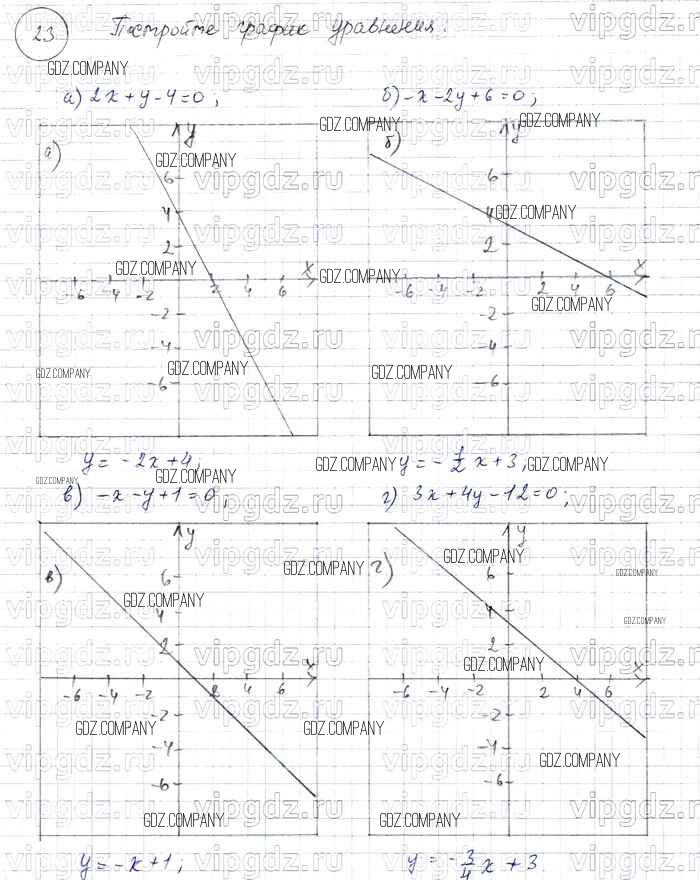 23 Постройте график уравнения:
GDZ.COMPANY
а) 2x+y-4=0; б) -x-2y+6=0;
GDZ.COMPANY GDZ.COMPANY
а) y б) y
GDZ.COMPANY
6 6
4 4 GDZ.COMPANY
2 2
GDZ.COMPANY x GDZ.COMPANY x
-6 -4 -2 2 4 6 -6 -4 -2 2 4 6
GDZ.COMPANY
-2 -2
-4 -4
GDZ.COMPANY GDZ.COMPANY GDZ.COMPANY
-6 -6
y = -2x+4; y = -1/2 x+3;
GDZ.COMPANY GDZ.COMPANY GDZ.COMPANY GDZ.COMPANY
в) -x-y+1=0; г) 3x+4y-12=0;
y y
GDZ.COMPANY
в) 6 GDZ.COMPANY г) 6 GDZ.COMPANY
GDZ.COMPANY
4 4 GDZ.COMPANY
2 2
x GDZ.COMPANY x
-6 -4 -2 2 4 6 -6 -4 -2 2 4 6
-2 -2
GDZ.COMPANY GDZ.COMPANY
-4 -4
GDZ.COMPANY
-6 -6
GDZ.COMPANY GDZ.COMPANY
y = -x+1; y = -3/4 x + 3.
vipgdz.ru